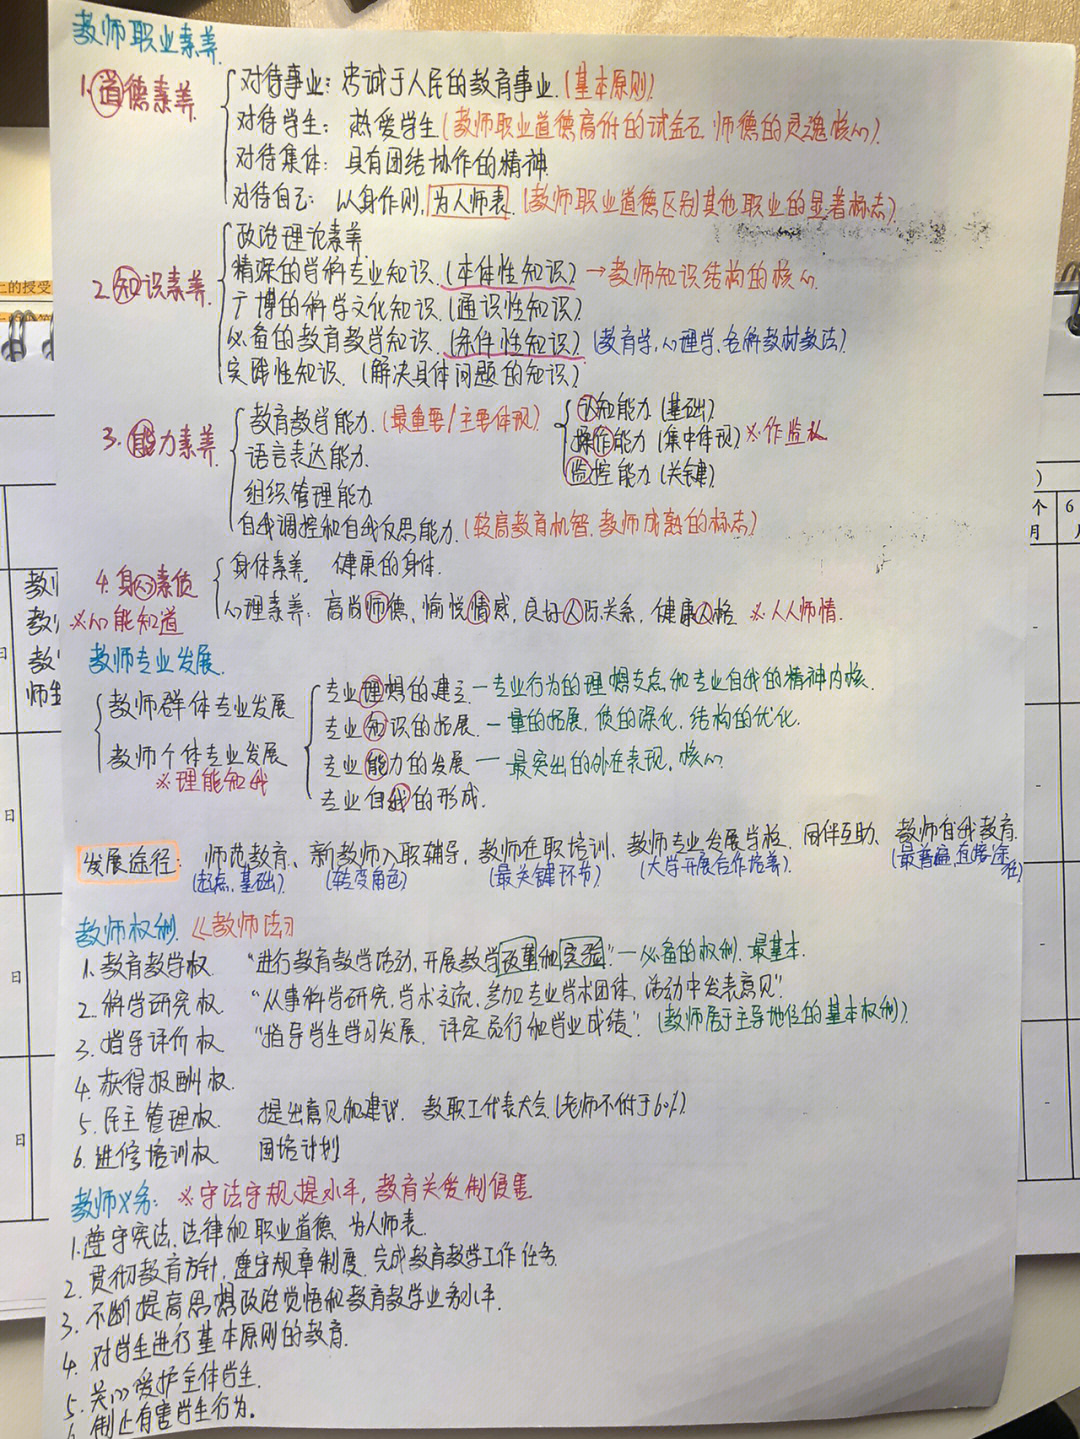 教师职业素养.
1.道德素养.
对待事业：忠诚于人民的教育事业.(基本原则)
对待学生：热爱学生(教师职业道德高低的试金石 师德的灵魂核心).
对待集体：具有团结协作的精神.
对待自己：以身作则,为人师表.(教师职业道德区别其他职业的显著标志).
2.知识素养.
政治理论素养.
精深的学科专业知识.(本体性知识)→教师知识结构的核心
广博的科学文化知识.(通识性知识)
必备的教育教学知识.(条件性知识).(教育学,心理学,各科教材教法).
实践性知识.(解决具体问题的知识)
3.能力素养.
教育教学能力.(最重要/主要体现)
认知能力(基础)
操作能力(集中体现)※作监认
监控能力(关键)
语言表达能力.
组织管理能力
自我调控和自我反思能力.(较高教育机智.教师成熟的标志)
4.身心素质
身体素养. 健康的身体.
※心能知道
心理素养：高尚师德,愉悦情感,良好人际关系,健康人格 ※人人师情.
教师专业发展.
教师群体专业发展
教师个体专业发展
※理能知我
专业理想的建立—专业行为的理想支点和专业自我的精神内核.
专业知识的拓展.—量的拓展.质的深化.结构的优化.
专业能力的发展—最突出的外在表现,核心
专业自我的形成.
发展途径：师范教育、新教师入职辅导、教师在职培训、教师专业发展学校、同伴互助、教师自我教育.
(起点,基础). (转变角色) (最关键环节) (大学开展合作培养). (最普遍,直接途径)
教师权利.《教师法》
1.教育教学权. “进行教育教学活动,开展教学改革和实验”—必备的权利,最基本.
2.科学研究权. “从事科学研究,学术交流,参加专业学术团体,活动中发表意见”
3.指导评价权 “指导学生学习发展,评定品行和学业成绩”.(教师居于主导地位的基本权利).
4.获得报酬权.
5.民主管理权. 提出意见和建议. 教职工代表大会.(老师不低于60%)
6.进修培训权. 国培计划
教师义务：※守法守规提水平,教育关爱制侵害
1.遵守宪法,法律和职业道德,为人师表.
2.贯彻教育方针,遵守规章制度.完成教育教学工作任务
3.不断提高思想政治觉悟和教育教学业务水平.
4.对学生进行基本原则的教育.
5.关心爱护全体学生.
6.制止有害学生行为。
上的授受
教
教
教
师生
日
日
日
日
个
月
6